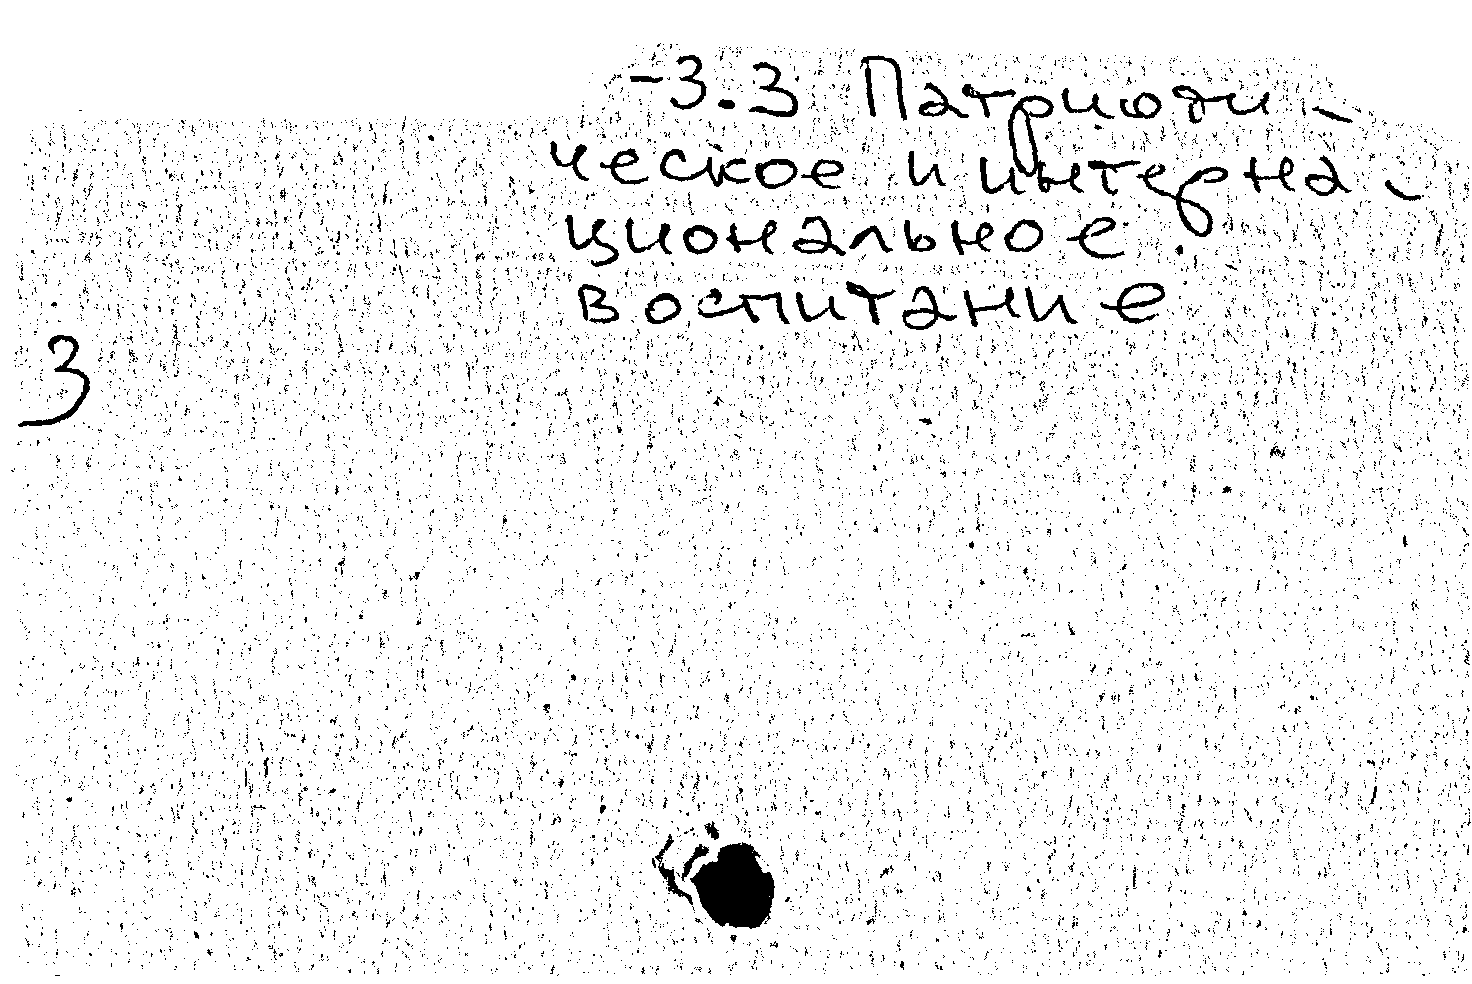 -3.3 Патриоти-
ческое и интерна-
циональное
воспитание
3